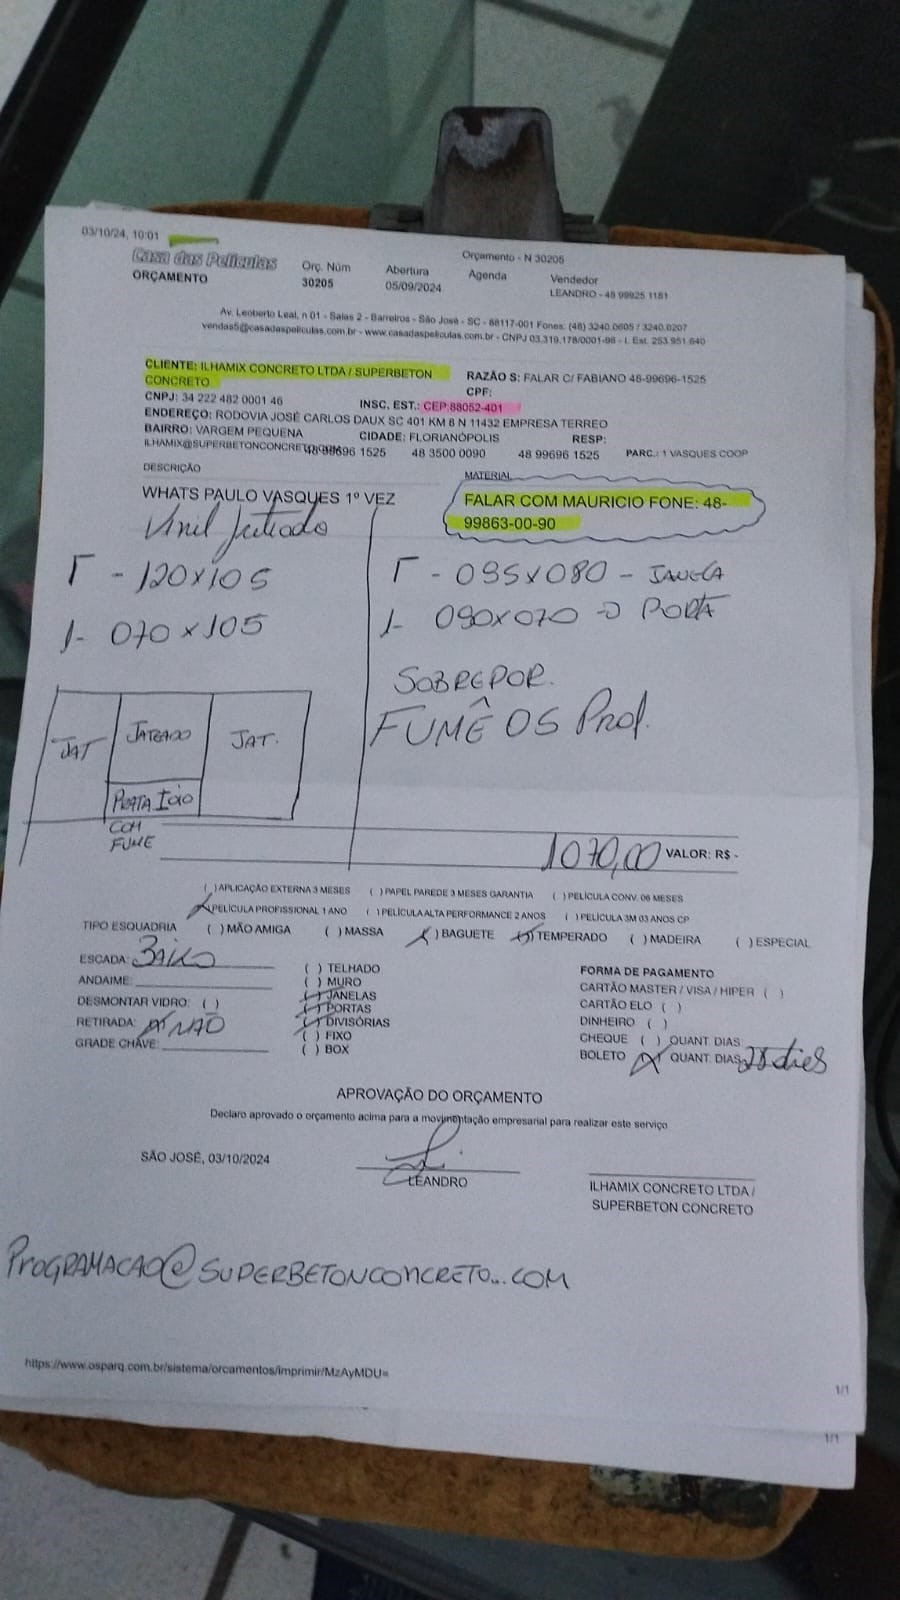 03/10/24, 10:01
Orçamento - N 30205
Casa das Películas
ORÇAMENTO
Orç. Núm
30205
Abertura
05/09/2024
Agenda
Vendedor
LEANDRO - 48 99925 1181
Av. Leoberto Leal, n 01 - Salas 2 - Barreiros - São José - SC - 88117-001 Fones: (48) 3240.0605 / 3240.0207
vendas5@casadaspeliculas.com.br - www.casadaspeliculas.com.br - CNPJ 03.319.178/0001-96 - I. Est. 253.951.640
CLIENTE: ILHAMIX CONCRETO LTDA / SUPERBETON
CONCRETO
RAZÃO S: FALAR C/ FABIANO 48-99696-1525
CPF:
CNPJ: 34 222 482 0001 46
INSC. EST.: CEP:88052-401
ENDEREÇO: RODOVIA JOSÉ CARLOS DAUX SC 401 KM 8 N 11432 EMPRESA TERREO
BAIRRO: VARGEM PEQUENA
CIDADE: FLORIANÓPOLIS
RESP:
ILHAMIX@SUPERBETONCONCRETO.COM
48 99696 1525
48 3500 0090
48 99696 1525
PARC.: 1 VASQUES COOP
DESCRIÇÃO
MATERIAL
WHATS PAULO VASQUES 1º VEZ
FALAR COM MAURICIO FONE: 48-
99863-00-90
Vinil Jateado
1 - 120x105
1- 070x105
1 - 095x080 - JANELA
1- 090x070 -> PORTA
SOBREPOR.
FUMÊ OS Prof.
JAT
JATEADO
JAT.
PORTA
COM
FUME
1070,00 VALOR: R$ -
( ) APLICAÇÃO EXTERNA 3 MESES ( ) PAPEL PAREDE 3 MESES GARANTIA ( ) PELÍCULA CONV. 06 MESES
(X) PELÍCULA PROFISSIONAL 1 ANO ( ) PELÍCULA ALTA PERFORMANCE 2 ANOS ( ) PELÍCULA 3M 03 ANOS CP
TIPO ESQUADRIA ( ) MÃO AMIGA ( ) MASSA (X) BAGUETE (X) TEMPERADO ( ) MADEIRA ( ) ESPECIAL
ESCADA: BAIXO
ANDAIME:
DESMONTAR VIDRO: ( )
RETIRADA: (X) NÃO
GRADE CHÁVE:
( ) TELHADO
( ) MURO
(X) JANELAS
(X) PORTAS
(X) DIVISÓRIAS
( ) FIXO
( ) BOX
FORMA DE PAGAMENTO
CARTÃO MASTER / VISA / HIPER ( )
CARTÃO ELO ( )
DINHEIRO ( )
CHEQUE ( ) QUANT. DIAS
BOLETO (X) QUANT. DIAS dies
APROVAÇÃO DO ORÇAMENTO
Declaro aprovado o orçamento acima para a movimentação empresarial para realizar este serviço
SÃO JOSÉ, 03/10/2024
LEANDRO
ILHAMIX CONCRETO LTDA /
SUPERBETON CONCRETO
PROGRAMACAO@SUPERBETONCONCRETO..COM
https://www.osparq.com.br/sistema/orcamentos/imprimir/MzAyMDU=
1/1
1/1